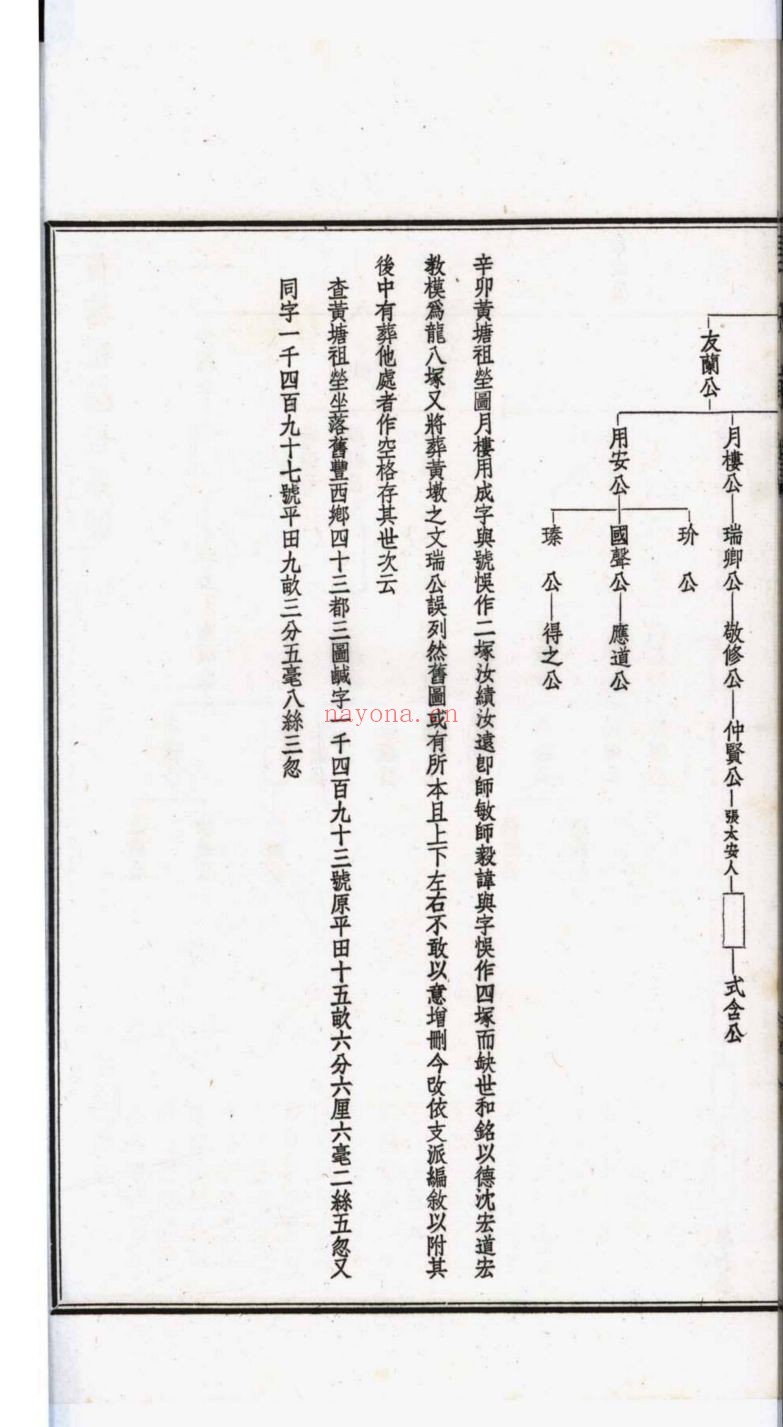 友蘭公
月樓公—瑞卿公—敬修公—仲賢公—張太安人—□—式含公
用安公
玠公
國聲公—應道公
瑧公—得之公
辛卯黃塘祖塋圖月樓用成字與號悞作二塚汝績汝遠卽師敏師毅諱與字悞作四塚而缺世和銘以德沈宏道宏
教模爲龍八塚又將葬黃墩之文瑞公誤列然舊圖或有所本且上下左右不敢以意增刪今改依支派編敘以附其
後中有葬他處者作空格存其世次云
查黃塘祖塋坐落舊豐西鄉四十三都三圖鹹字一千四百九十三號原平田十五畝六分六厘六毫二絲五忽又
同字一千四百九十七號平田九畝三分五毫八絲三忽
nayona.cn